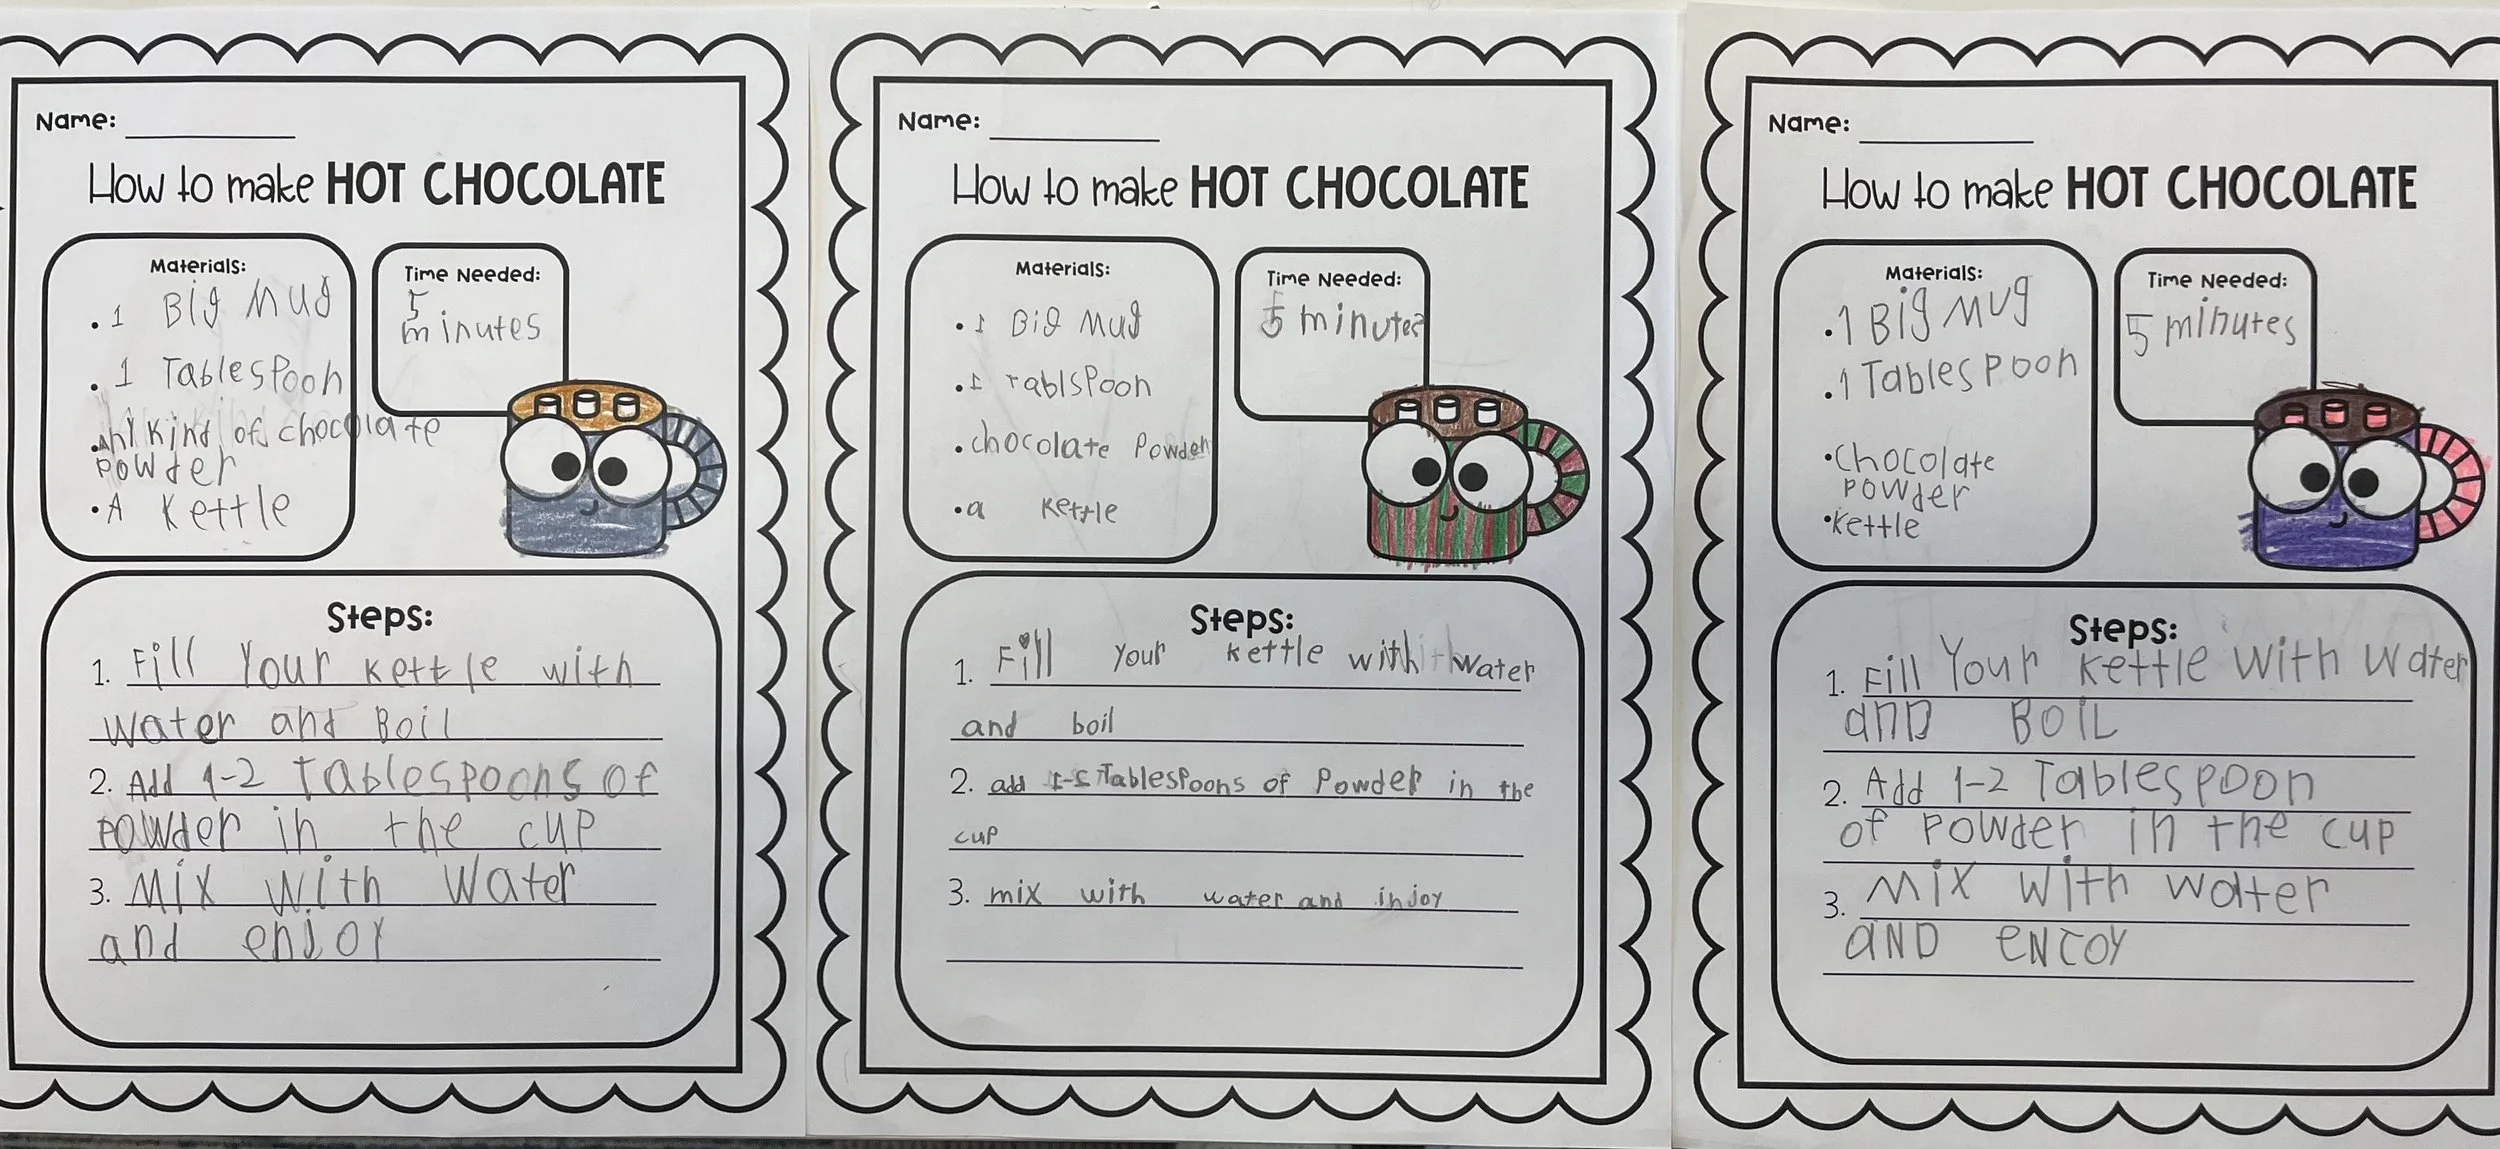 Name:
How to make HOT CHOCOLATE
Materials:
• 1 Big Mug
• 1 Tablespoon
• Any kind of chocolate
powder
• A kettle
Time Needed:
5
minutes
Steps:
1. Fill Your kettle with
water and Boil
2. Add 1-2 Tablespoons of
powder in the cup
3. Mix With Water
and enjoy
Name:
How to make HOT CHOCOLATE
Materials:
• 1 Big Mug
• 1 Tablspoon
• chocolate Powder
• a kettle
Time Needed:
5 minutes
Steps:
1. Fill your kettle with water
and boil
2. add Tablespoons of Powder in the
cup
3. mix with water and injoy
Name:
How to make HOT CHOCOLATE
Materials:
• 1 Big Mug
• 1 Tablespoon
• Chocolate
powder
• Kettle
Time Needed:
5 minutes
Steps:
1. Fill Your Kettle With Water
anD BOiL
2. Add 1-2 Tablespoon
of Powder in the cup
3. Mix with water
aND eNJOY